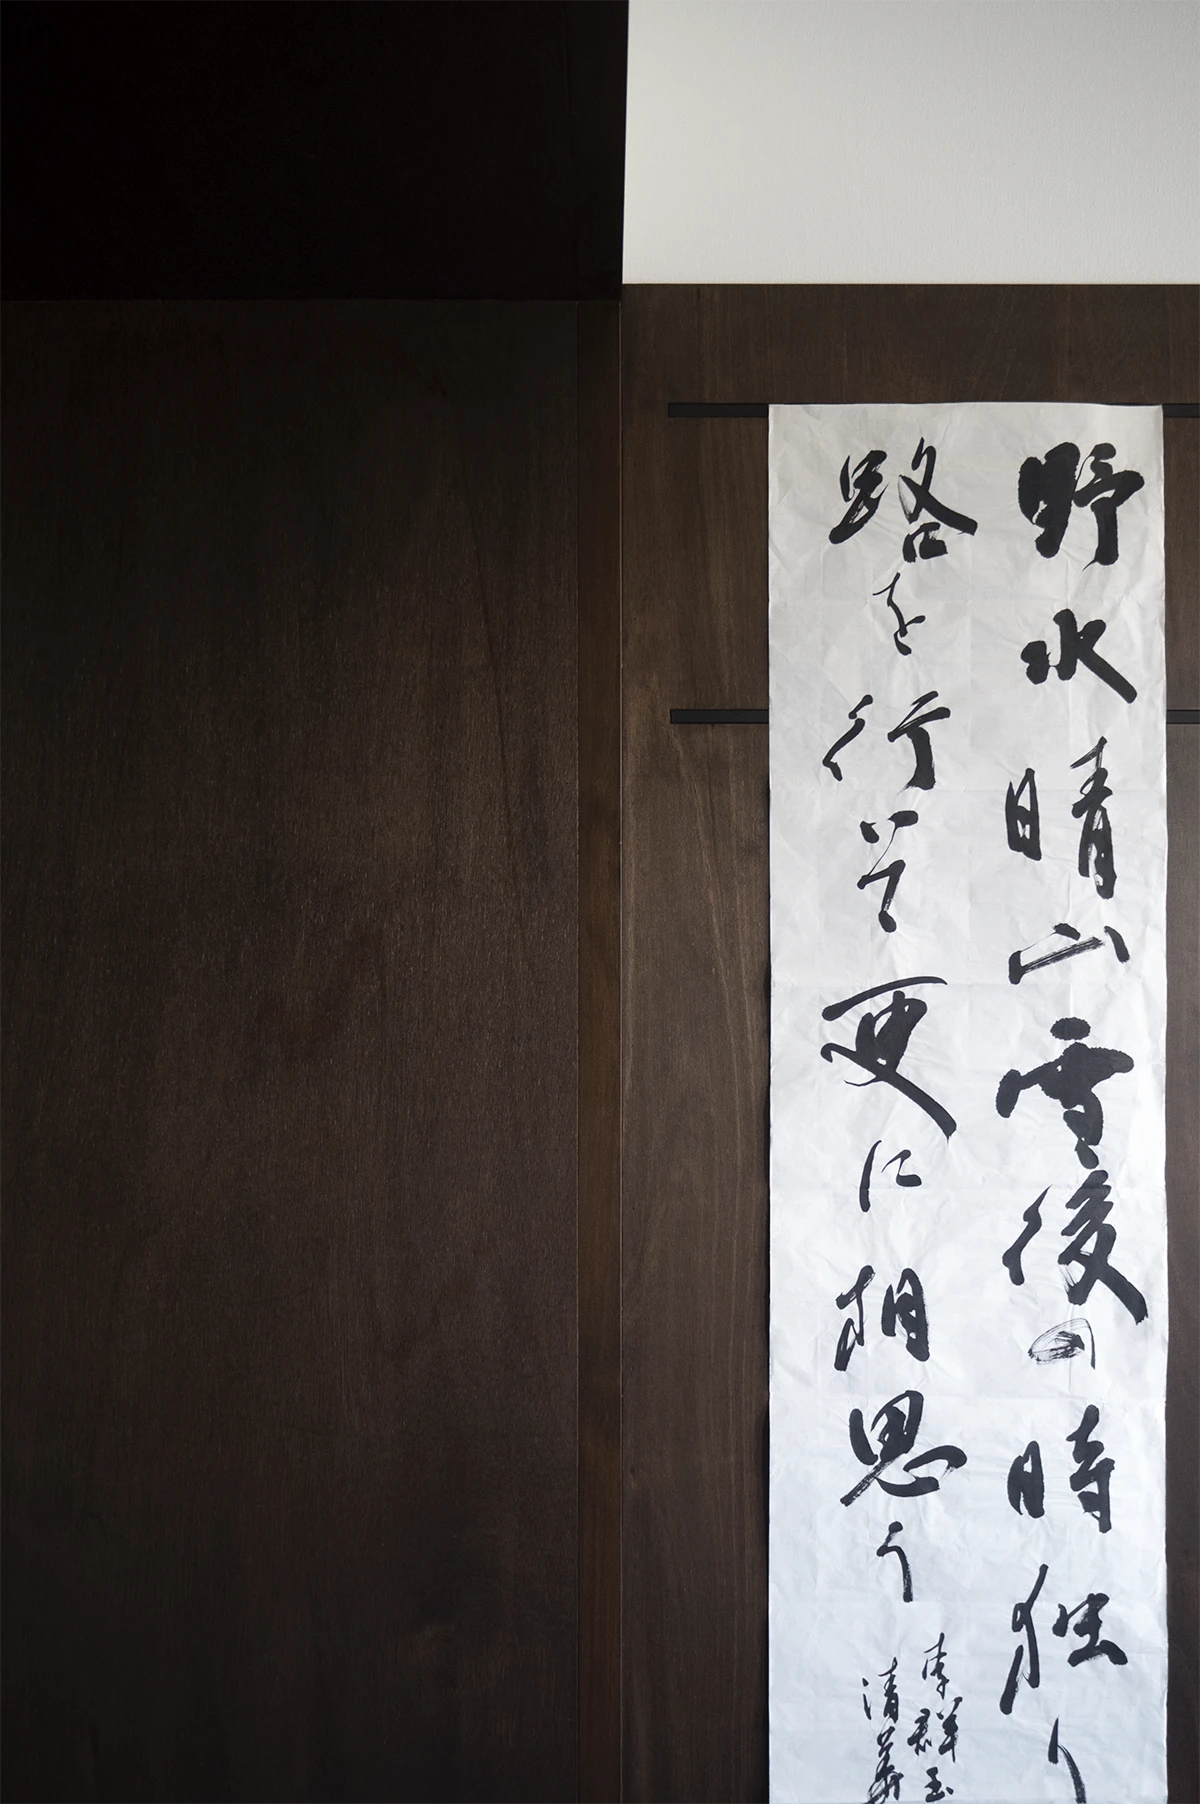 野水晴山雪後の時独り
路を行いて更に相思う
李群玉
清華